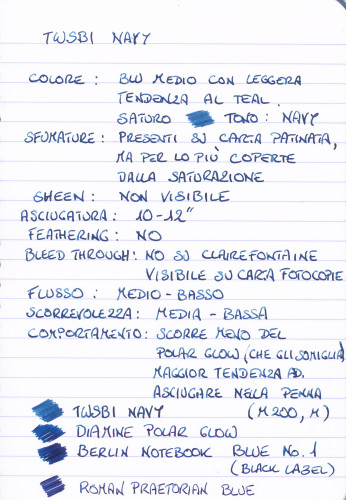 TWSBI NAVY
COLORE: BLU MEDIO CON LEGGERA
TENDENZA AL TEAL.
SATURO TONO: NAVY
SFUMATURE: PRESENTI SU CARTA PATINATA,
MA PER LO PIÙ COPERTE
DALLA SATURAZIONE
SHEEN: NON VISIBILE
ASCIUGATURA: 10-12"
FEATHERING: NO
BLEED THROUGH: NO SU CLAIREFONTAINE
VISIBILE SU CARTA FOTOCOPIE
FLUSSO: MEDIO-BASSO
SCORREVOLEZZA: MEDIA-BASSA
COMPORTAMENTO: SCORRE MENO DEL
POLAR GLOW (CHE GLI SOMIGLIA)
MAGGIOR TENDENZA AD.
ASCIUGARE NELLA PENNA
TWSBI NAVY (M200, M)
DIAMINE POLAR GLOW
BERLIN NOTEBOOK BLUE No.1
(BLACK LABEL)
ROMAN PRAETORIAN BLUE